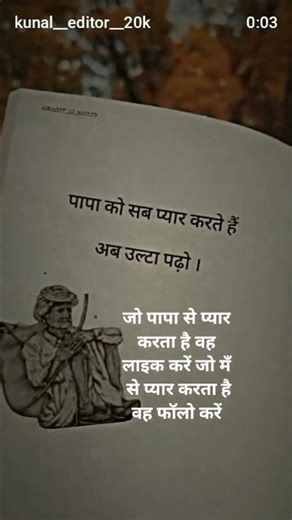 kunal__editor__20k
0:03
पापा को सब प्यार करते हैं
अब उल्टा पढ़ो ।
जो पापा से प्यार
करता है वह
लाइक करें जो मँ
से प्यार करता है
वह फॉलो करें